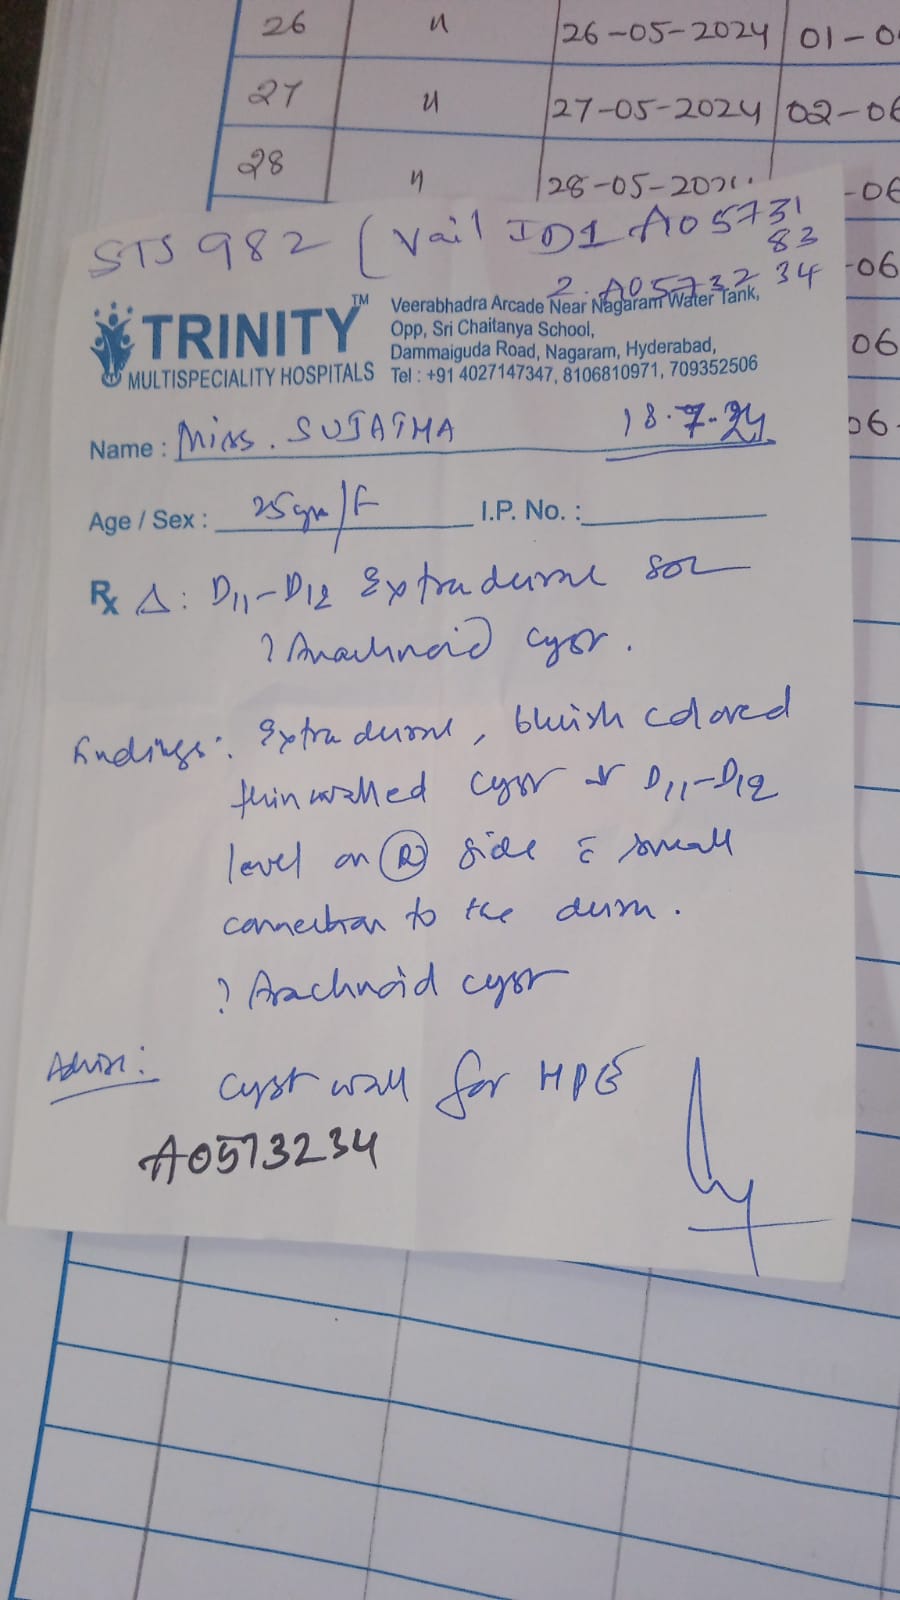 26 " 26-05-2024 01-0
27 " 27-05-2024 02-06
28 " 28-05-202 -06
STS 982 ( Vail ID1 A05731
83
2. A05732 34 -06
TRINITY™
MULTISPECIALITY HOSPITALS
Veerabhadra Arcade Near Nagaram Water Tank,
Opp, Sri Chaitanya School,
Dammaiguda Road, Nagaram, Hyderabad,
Tel : +91 4027147347, 8106810971, 709352506
06
Name : Miss. SUJATHA 18.7.24
06-
Age / Sex : 25yrs/F I.P. No. :
Rx Δ: D11-D12 Extradural SOL
? Arachnoid cyst.
Findings: Extradural, bluish colored
thin walled cyst at D11-D12
level on (R) side c̄ small
connection to the dura.
? Arachnoid cyst
Advise:
cyst wall for HPE
A0573234